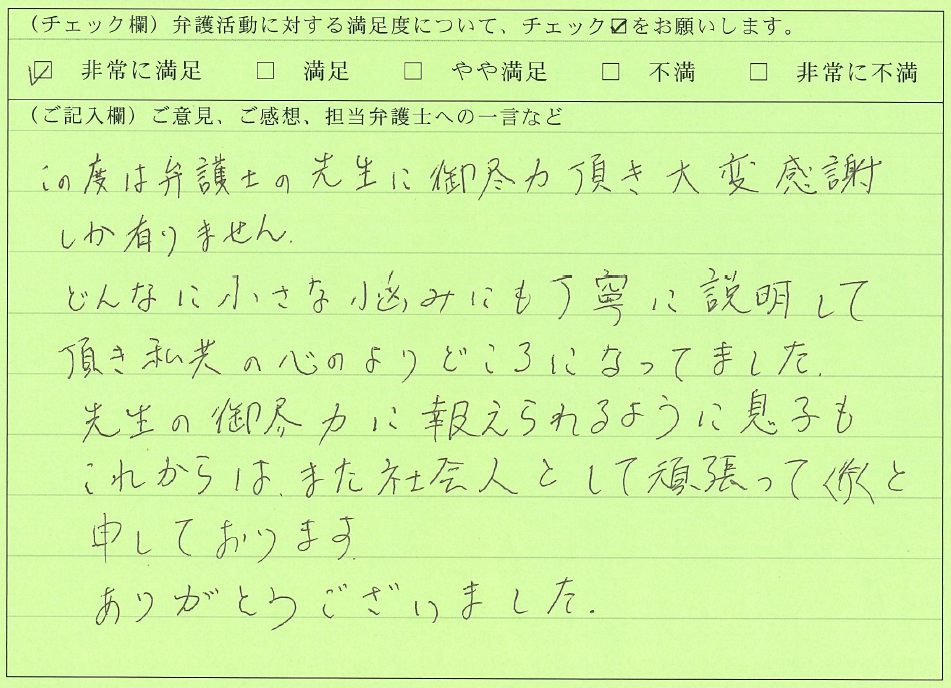 (チェック欄)弁護活動に対する満足度について、チェック☑をお願いします。
☑ 非常に満足 □ 満足 □ やや満足 □ 不満 □ 非常に不満
(ご記入欄)ご意見、ご感想、担当弁護士への一言など
この度は弁護士の先生に御尽力頂き大変感謝
しか有りません.
どんなに小さな悩みにも丁寧に説明して
頂き私共の心のよりどころになってました.
先生の御尽力に報えられるように息子も
これからは、また社会人として頑張って行くと
申しております.
ありがとうございました.